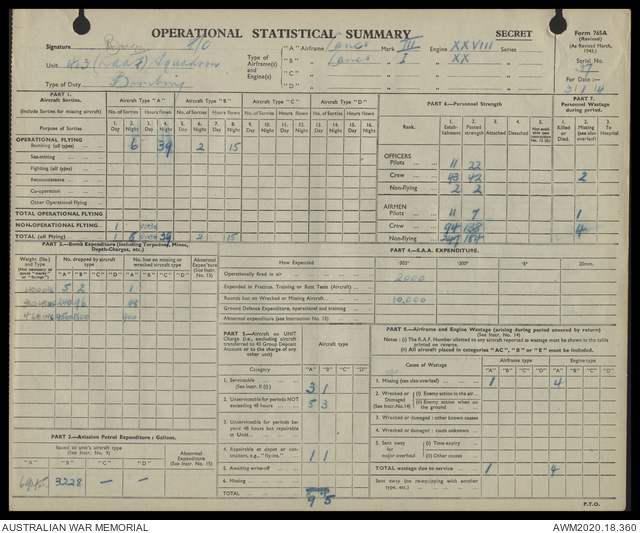 OPERATIONAL STATISTICAL SUMMARY
SECRET
Form 765A
(Revised)
(As Revised March, 1943.)
Serial No. 27
For Date :— 3/1/4
Signature F/O
Unit 463 (RAAF) Squadron
Type of Duty Bombing
Type of Airframe(s) and Engine(s)
"A" Airframe Lancs Mark III Engine XXVIII Series
"B" " Lancs " I " XX "
"C" " " " "
"D" " " " "
PART 1.
Aircraft Sorties.
(Include Sorties for missing aircraft)
Aircraft Type "A" Aircraft Type "B" Aircraft Type "C" Aircraft Type "D"
No. of Sorties Hours flown No. of Sorties Hours flown No. of Sorties Hours flown No. of Sorties Hours flown
Purpose of Sorties
1. Day 2. Night 3. Day 4. Night 5. Day 6. Night 7. Day 8. Night 9. Day 10. Night 11. Day 12. Night 13. Day 14. Night 15. Day 16. Night
OPERATIONAL FLYING
Bombing (all types) ... 6 39 2 15
Sea-mining
Fighting (all types) ...
Reconnaissance ...
Co-operation ...
Other Operational Flying
TOTAL OPERATIONAL FLYING
NON-OPERATIONAL FLYING. 1
TOTAL (all Flying) ... 1 6 39 2 15
PART 6.—Personnel Strength
PART 7.
Personnel Wastage during period.
Rank.
1. Establishment 2. Posted strength 3. Attached 4. Detached 5. Not available (see instruction No. 12 (ii))
1. Killed or Died. 2. Missing (see also overleaf) 3. To Hospital
OFFICERS
Pilots ... 11 22
Crew ... 43 42 2
Non-flying ... 2 2
AIRMEN
Pilots ... 11 7 1
Crew ... 94 138 4
Non-flying ... 247 184
PART 2.—Bomb Expenditure (Including Torpedoes, Mines, Depth-Charges, etc.)
Weight (lbs.) and Type
No. dropped by aircraft type
No. lost on missing or wrecked aircraft type
Abnormal Expen'ture (See Instr. 13)
"A" "B" "C" "D" "A" "B" "C" "D"
4000 5 2 1
30 240 96 48
4 400
PART 4.—S.A.A. EXPENDITURE.
How Expended
·303" ·300" ·5" 20mm.
Operationally fired in air ... 2000
Expended in Practice, Training or Butt Tests (Aircraft) ...
Rounds lost on Wrecked or Missing Aircraft... 10,000
Ground Defence Expenditure, operational and training
Abnormal expenditure (see Instruction No. 13) ...
PART 5.—Aircraft on UNIT Charge (i.e., excluding aircraft transferred to 43 Group Deposit Account or to the charge of any other unit)
Aircraft type
Category "A" "B" "C" "D"
1. Serviceable ... (See Instr. II (i)) 3 1
2. Unserviceable for periods NOT exceeding 48 hours ... 5 3
3. Unserviceable for periods beyond 48 hours but repairable at Unit ...
4. Repairable at depot or contractors, e.g. "fly-ins." ... 1 1
5. Awaiting write-off ...
6. Missing ...
TOTAL ... 9 5
PART 8.—Airframe and Engine Wastage (arising during period covered by return) (See Instr. No. 14)
Notes : (i) The R.A.F. Number allotted to any aircraft reported as wastage must be shown in the table printed on reverse.
(ii) All aircraft placed in categories "AC", "B" or "E" must be included.
Cause of Wastage
Airframe type Engine type
"A" "B" "C" "D" "A" "B" "C" "D"
1. Missing (see also overleaf) ... 1 4
2. Wrecked or Damaged (See Instr. No.14) (i) Enemy action in the air...
(ii) Enemy action when on the ground ...
3. Wrecked or damaged : other known causes
4. Wrecked or damaged : cause unknown ...
5. Sent away for major overhaul (i) Time expiry
(ii) Other causes
TOTAL wastage due to service ... 1 4
Sent away (on re-equipping with another type, etc.) ...
PART 3.—Aviation Petrol Expenditure : Gallons.
Issued to unit's aircraft type (See Instr. No. 9)
Abnormal Expenditure (See Instr. No. 13)
"A" "B" "C" "D"
3228 — —
P.T.O.
AUSTRALIAN WAR MEMORIAL
AWM2020.18.360